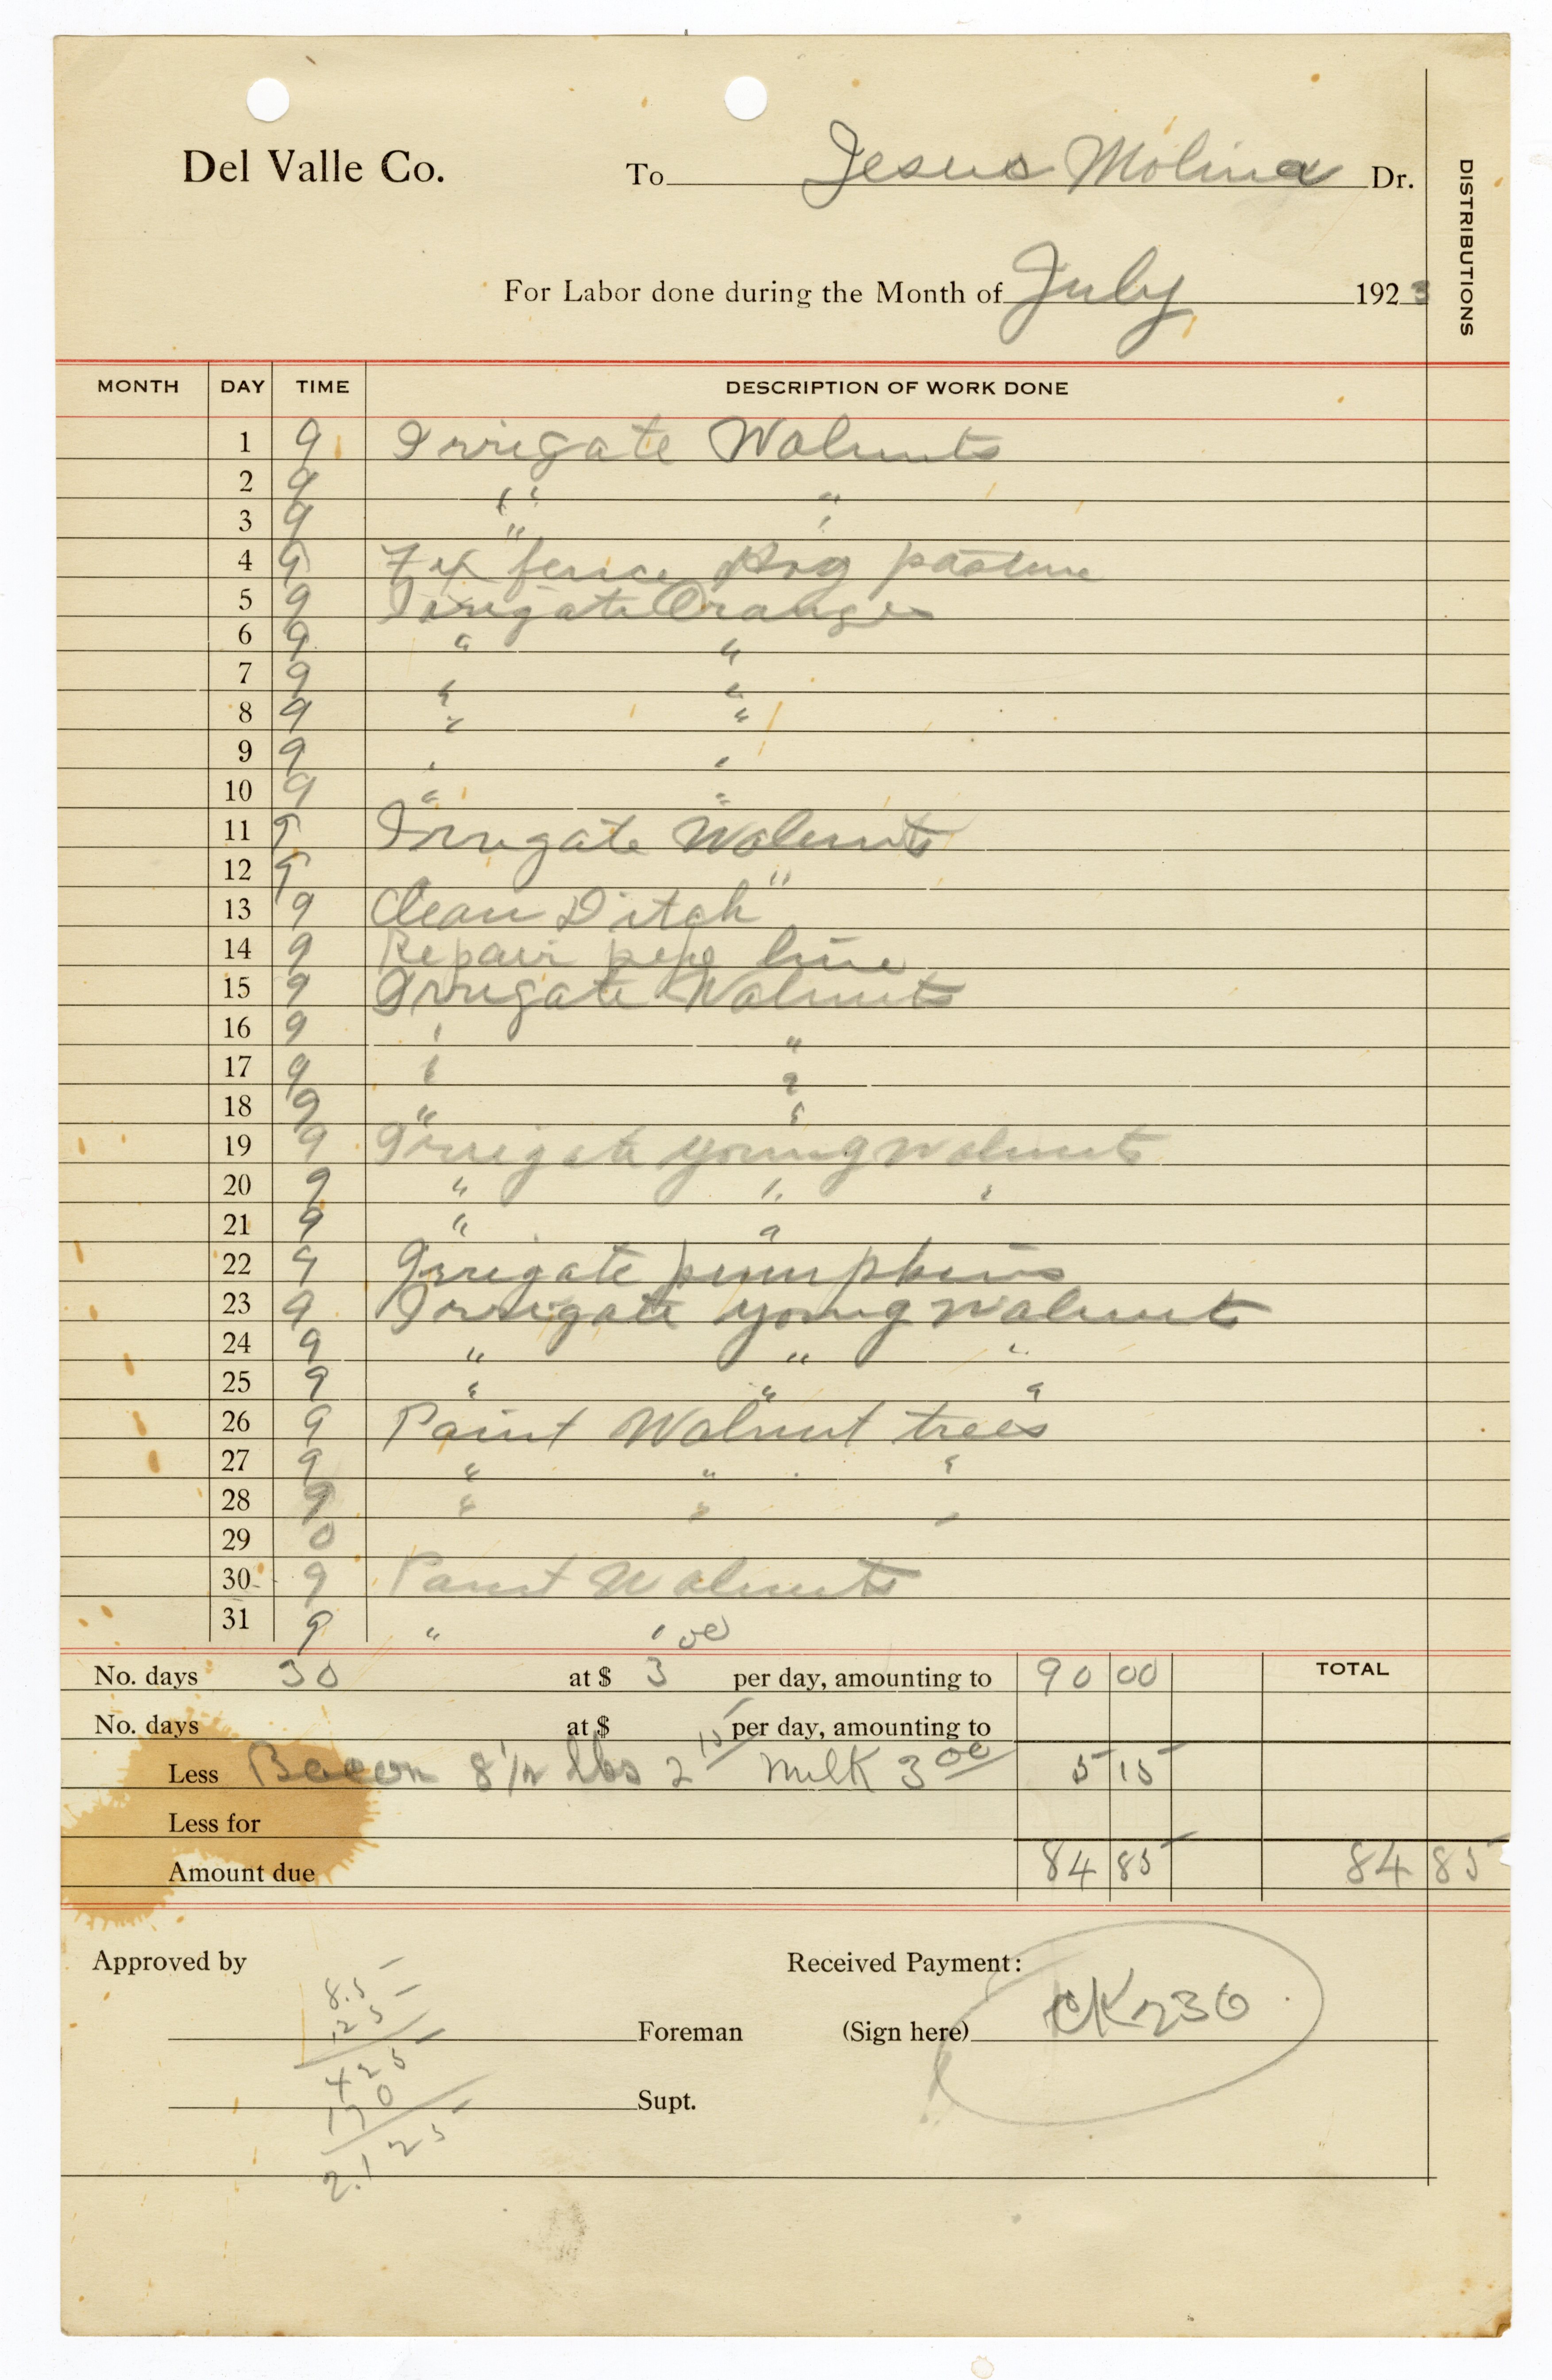 DISTRIBUTIONS
Del Valle Co. To Jesus Molina Dr.
For Labor done during the Month of July 1923
MONTH DAY TIME DESCRIPTION OF WORK DONE
1 9 Irrigate Walnuts
2 9 " "
3 9 " "
4 9 Fix fence Hog pasture
5 9 Irrigate Oranges
6 9 " "
7 9 " "
8 9 " "
9 9 " "
10 9 " "
11 9 Irrigate Walnuts
12 9 "
13 9 Clean Ditch
14 9 Repair pipe line
15 9 Irrigate Walnuts
16 9 " "
17 9 " "
18 9 " "
19 9 Irrigate young walnuts
20 9 " " "
21 9 " "
22 9 Irrigate pumpkins
23 9 Irrigate young walnuts
24 9 " " "
25 9 " " "
26 9 Paint Walnut trees
27 9 " " "
28 9 " " "
29 0
30 9 Paint Walnuts
31 9 " "
No. days 30 at $ 3 00 per day, amounting to 90 00 TOTAL
No. days at $ per day, amounting to
Less Bacon 8 1/2 lbs 2 15 Milk 3 00 5 15
Less for
Amount due 84 85 84 85
Approved by Received Payment:
8.5
125
Foreman (Sign here) CK 230
425
170
Supt.
2.125